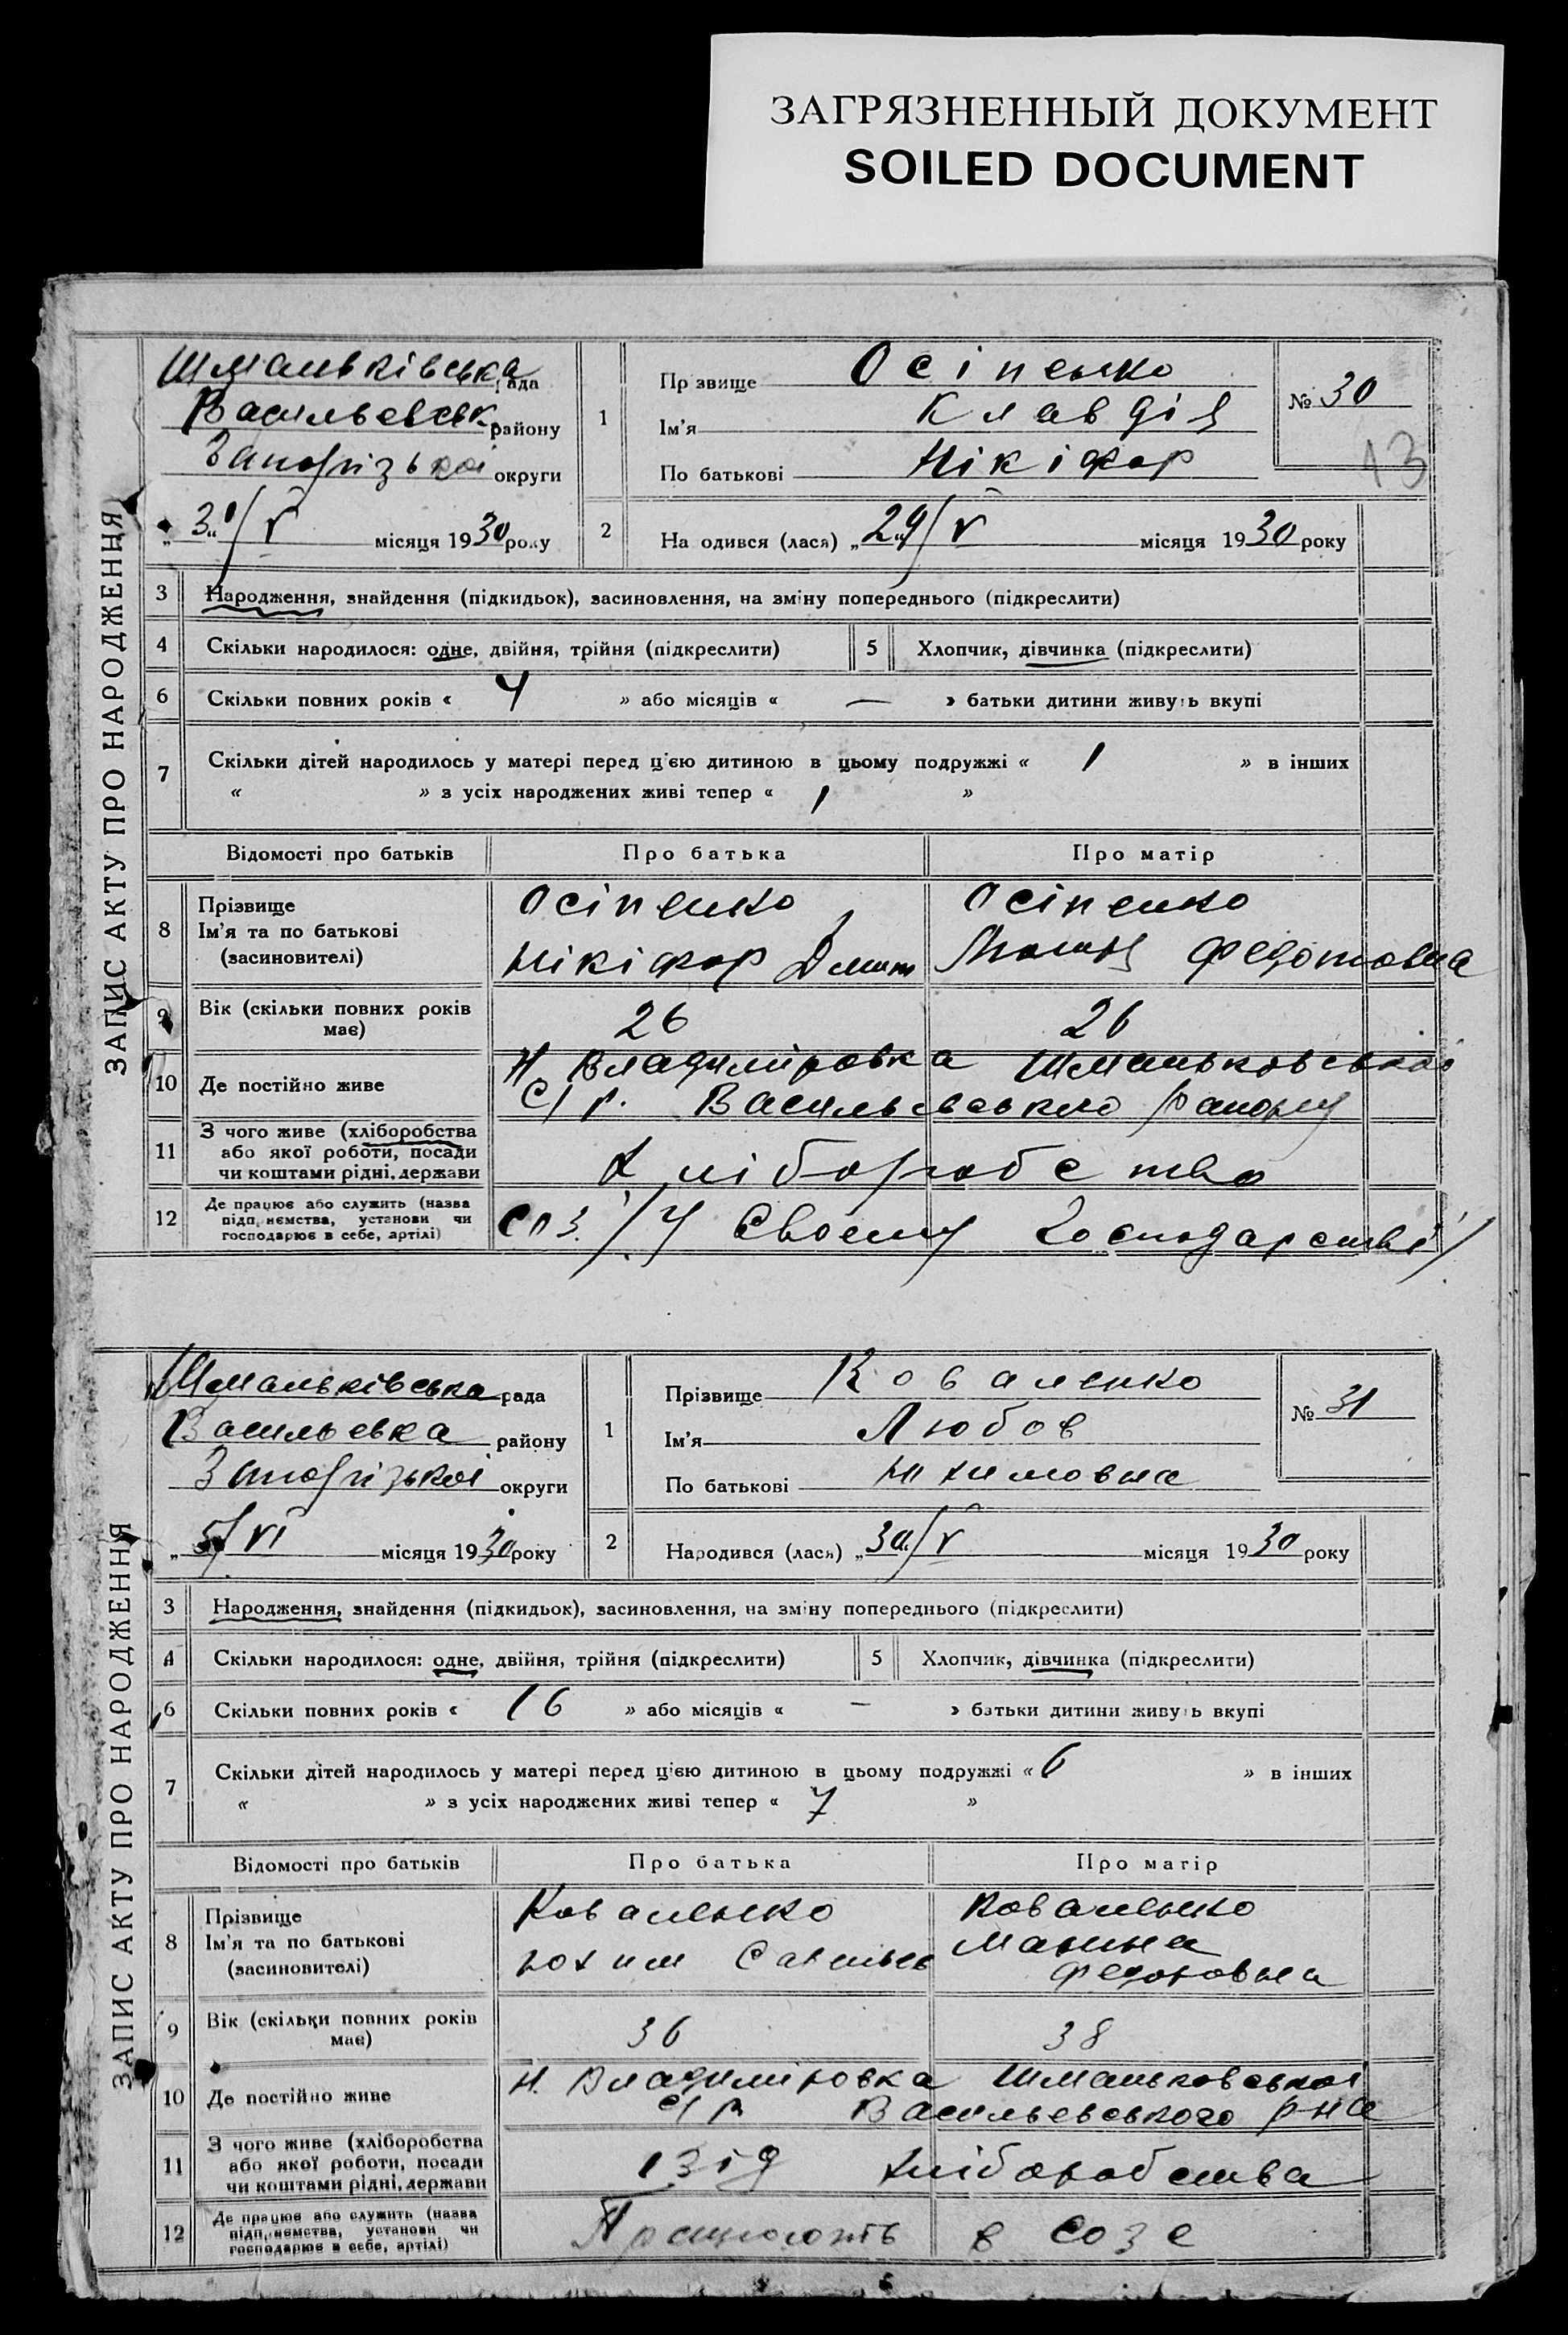 ЗАГРЯЗНЕННЫЙ ДОКУМЕНТ
SOILED DOCUMENT
ЗАПИС АКТУ ПРО НАРОДЖЕННЯ
Шманьківська рада
Васильевськ району
Запорізької округи
„30“/V місяця 1930 року
1 Прізвище Осіпенко
Ім'я Клавдія
По батькові Нікіфор
№ 30
13
2 Народився (лася) „29“/V місяця 1930 року
3 Народження, знайдення (підкидьок), засиновлення, на зміну попереднього (підкреслити)
4 Скільки народилося: одне, двійня, трійня (підкреслити) 5 Хлопчик, дівчинка (підкреслити)
6 Скільки повних років « 4 » або місяців « — » батьки дитини живуть вкупі
7 Скільки дітей народилось у матері перед цією дитиною в цьому подружжі « 1 » в інших
« » з усіх народжених живі тепер « 1 »
Відомості про батьків Про батька Про матір
8 Прізвище
Ім'я та по батькові
(засиновителі)
Осіпенко Осіпенко
Нікіфор Дмит Федотовна
9 Вік (скільки повних років має) 26 26
10 Де постійно живе
Н Владиміровка Шманьковської
С/р. Васильевського району
11 З чого живе (хліборобства
або якої роботи, посади
чи коштами рідні, держави
Хліборобство
12 Де працює або служить (назва
підприємства, установи чи
господарює в себе, артілі)
Соз. / У Своему Господарстві /
ЗАПИС АКТУ ПРО НАРОДЖЕННЯ
Шманьківська рада
Васильевка району
Запорізької округи
„5“/VI місяця 1930 року
1 Прізвище Коваленко
Ім'я Любов
По батькові
№ 31
2 Народився (лася) „30“/V місяця 1930 року
3 Народження, знайдення (підкидьок), засиновлення, на зміну попереднього (підкреслити)
4 Скільки народилося: одне, двійня, трійня (підкреслити) 5 Хлопчик, дівчинка (підкреслити)
6 Скільки повних років « 16 » або місяців « — » батьки дитини живуть вкупі
7 Скільки дітей народилось у матері перед цією дитиною в цьому подружжі « 6 » в інших
« » з усіх народжених живі тепер « 7 »
Відомості про батьків Про батька Про матір
8 Прізвище
Ім'я та по батькові
(засиновителі)
Коваленко Коваленко
Юхим Савельев
Федоровна
9 Вік (скільки повних років має) 36 38
10 Де постійно живе
Н. Владиміровка Шманьковської
с/р Васильевського р-на
11 З чого живе (хліборобства
або якої роботи, посади
чи коштами рідні, держави
хліборобства
12 Де працює або служить (назва
підприємства, установи чи
господарює в себе, артілі)
Працюють в созе